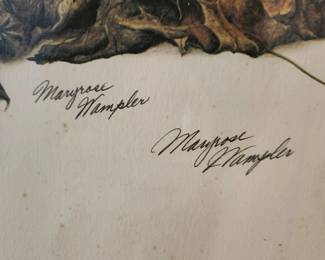 Maryrose
Wampler
Maryrose
Wampler